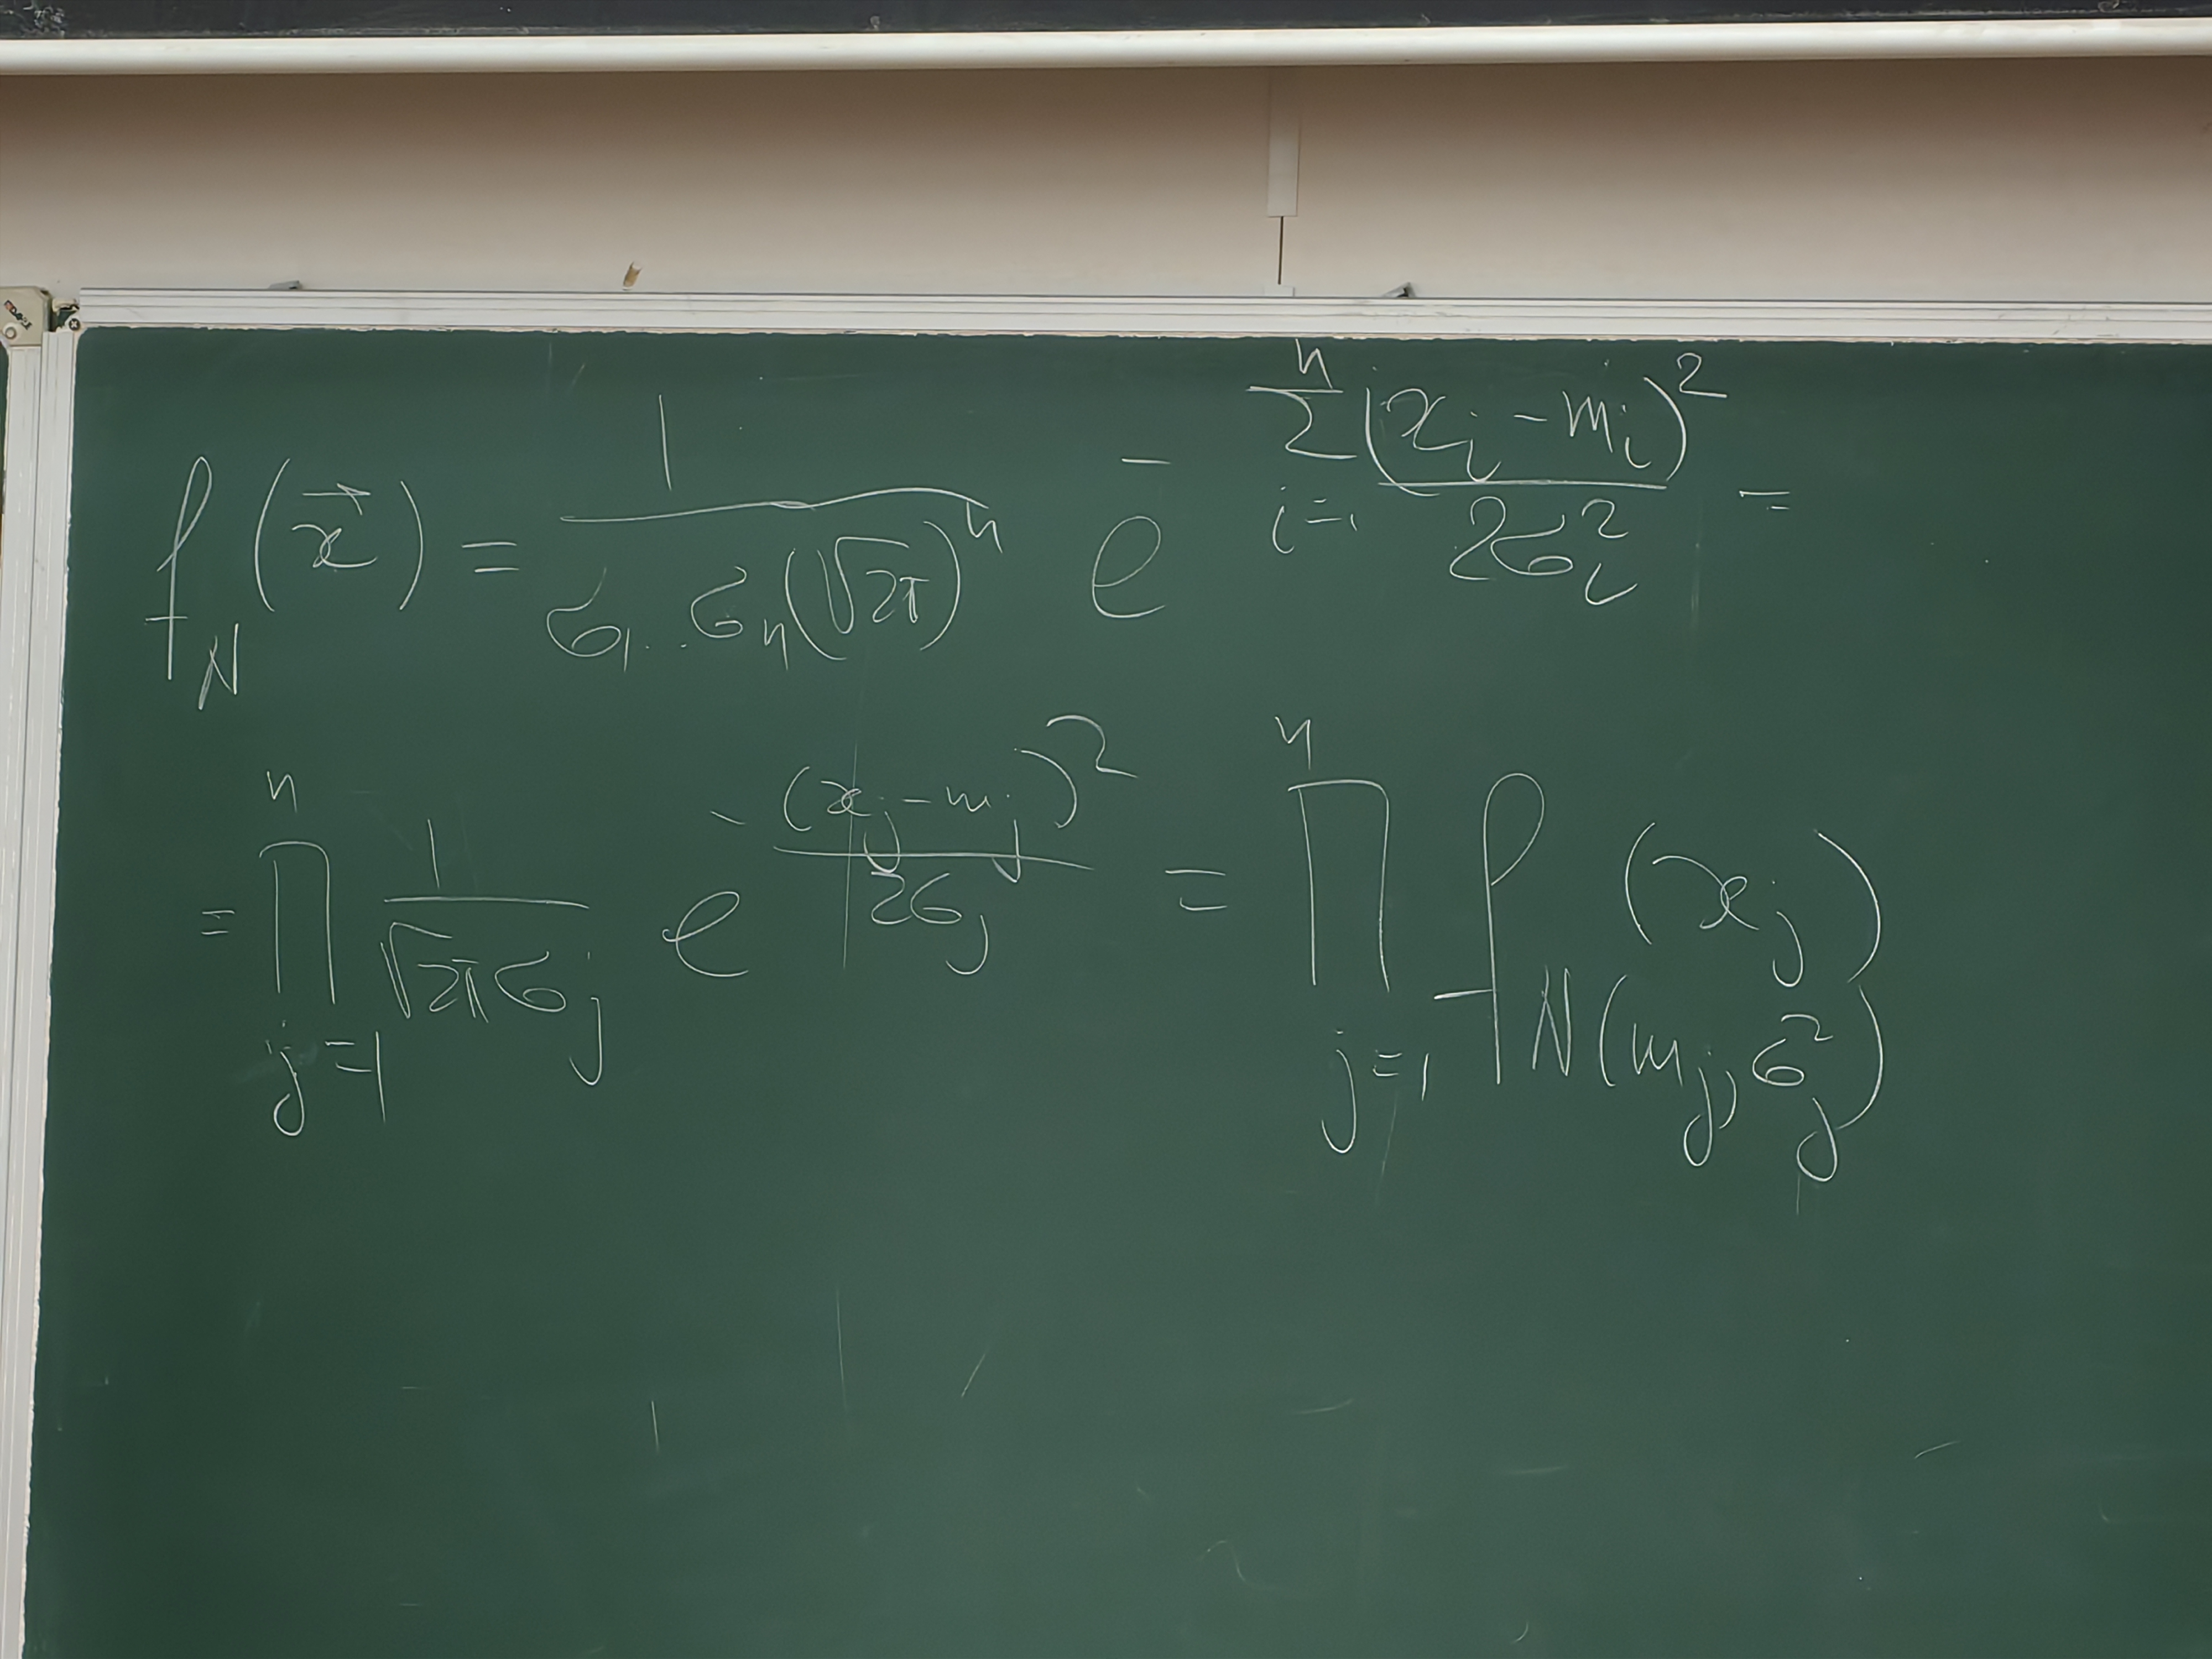 $f_N(\vec{x}) = \frac{1}{\sigma_1 .. \sigma_n (\sqrt{2\pi})^n} e^{-\sum_{i=1}^{n} \frac{(x_i - m_i)^2}{2\sigma_i^2}} =$
$= \prod_{j=1}^{n} \frac{1}{\sqrt{2\pi}\sigma_j} e^{-\frac{(x_j - m_j)^2}{2\sigma_j}} = \prod_{j=1}^{n} f_{N(m_j, \sigma_j^2)}(x_j)$